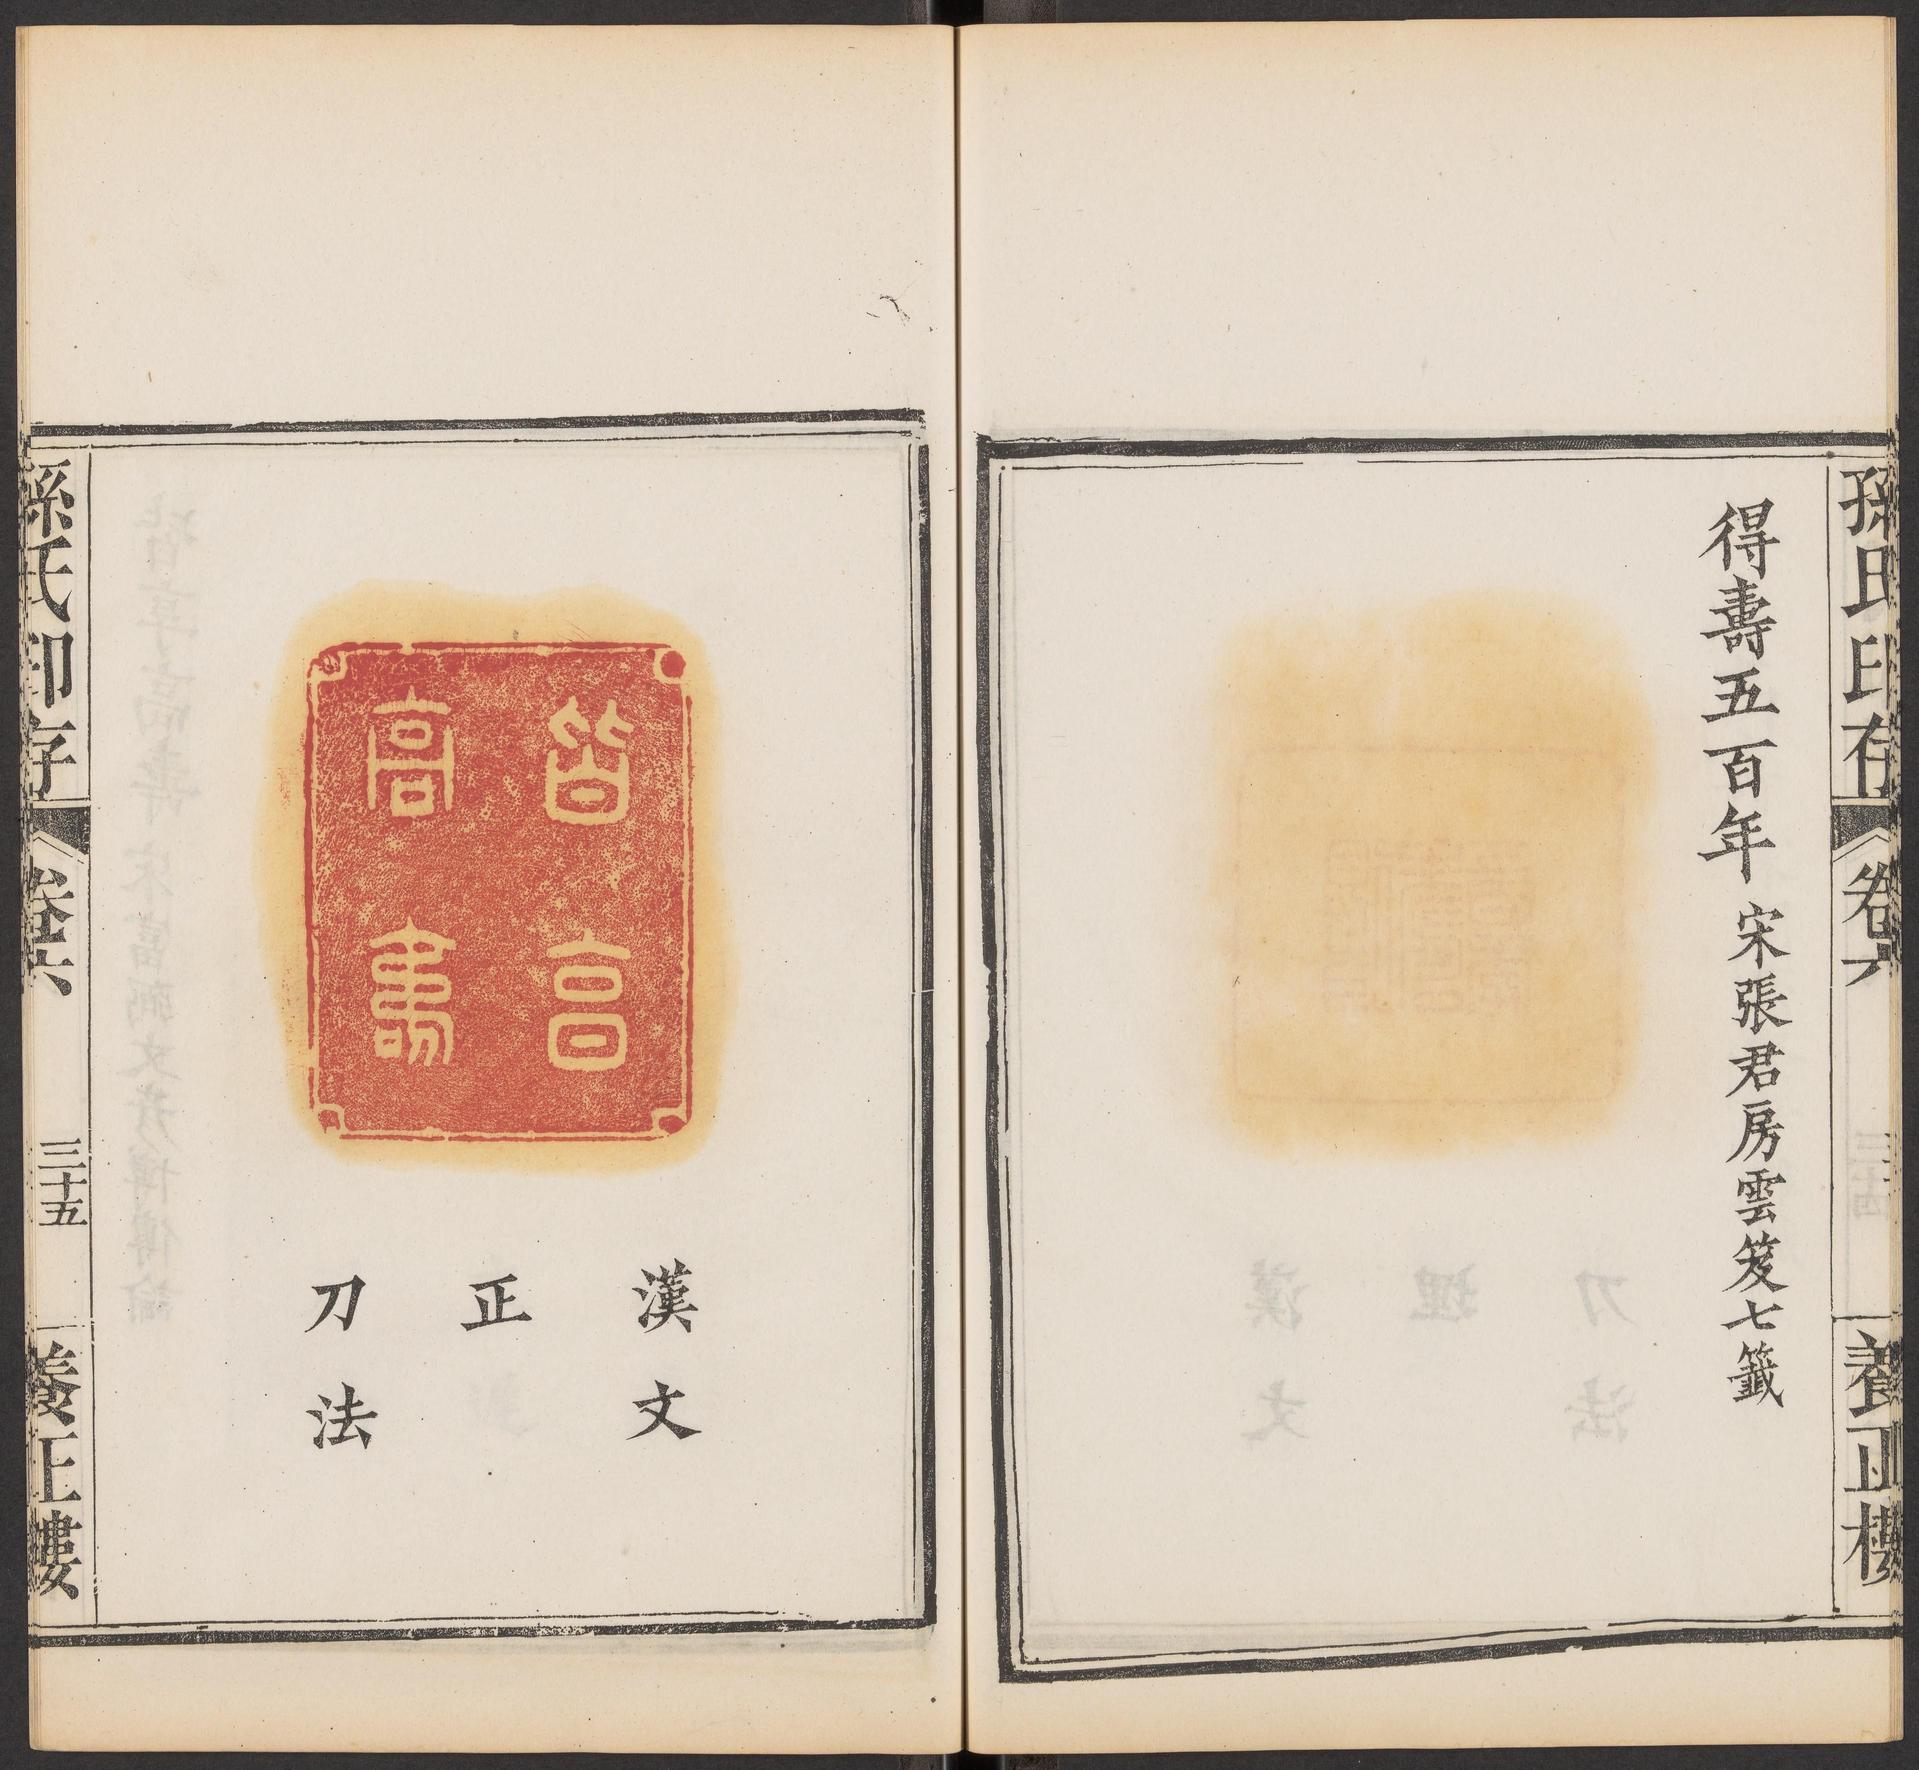 孫氏印存
卷六
養正樓
得壽五百年 宋張君房雲笈七籤
皆享
高壽
漢文
正
刀法
孫氏印存
卷六
三十五
養正樓